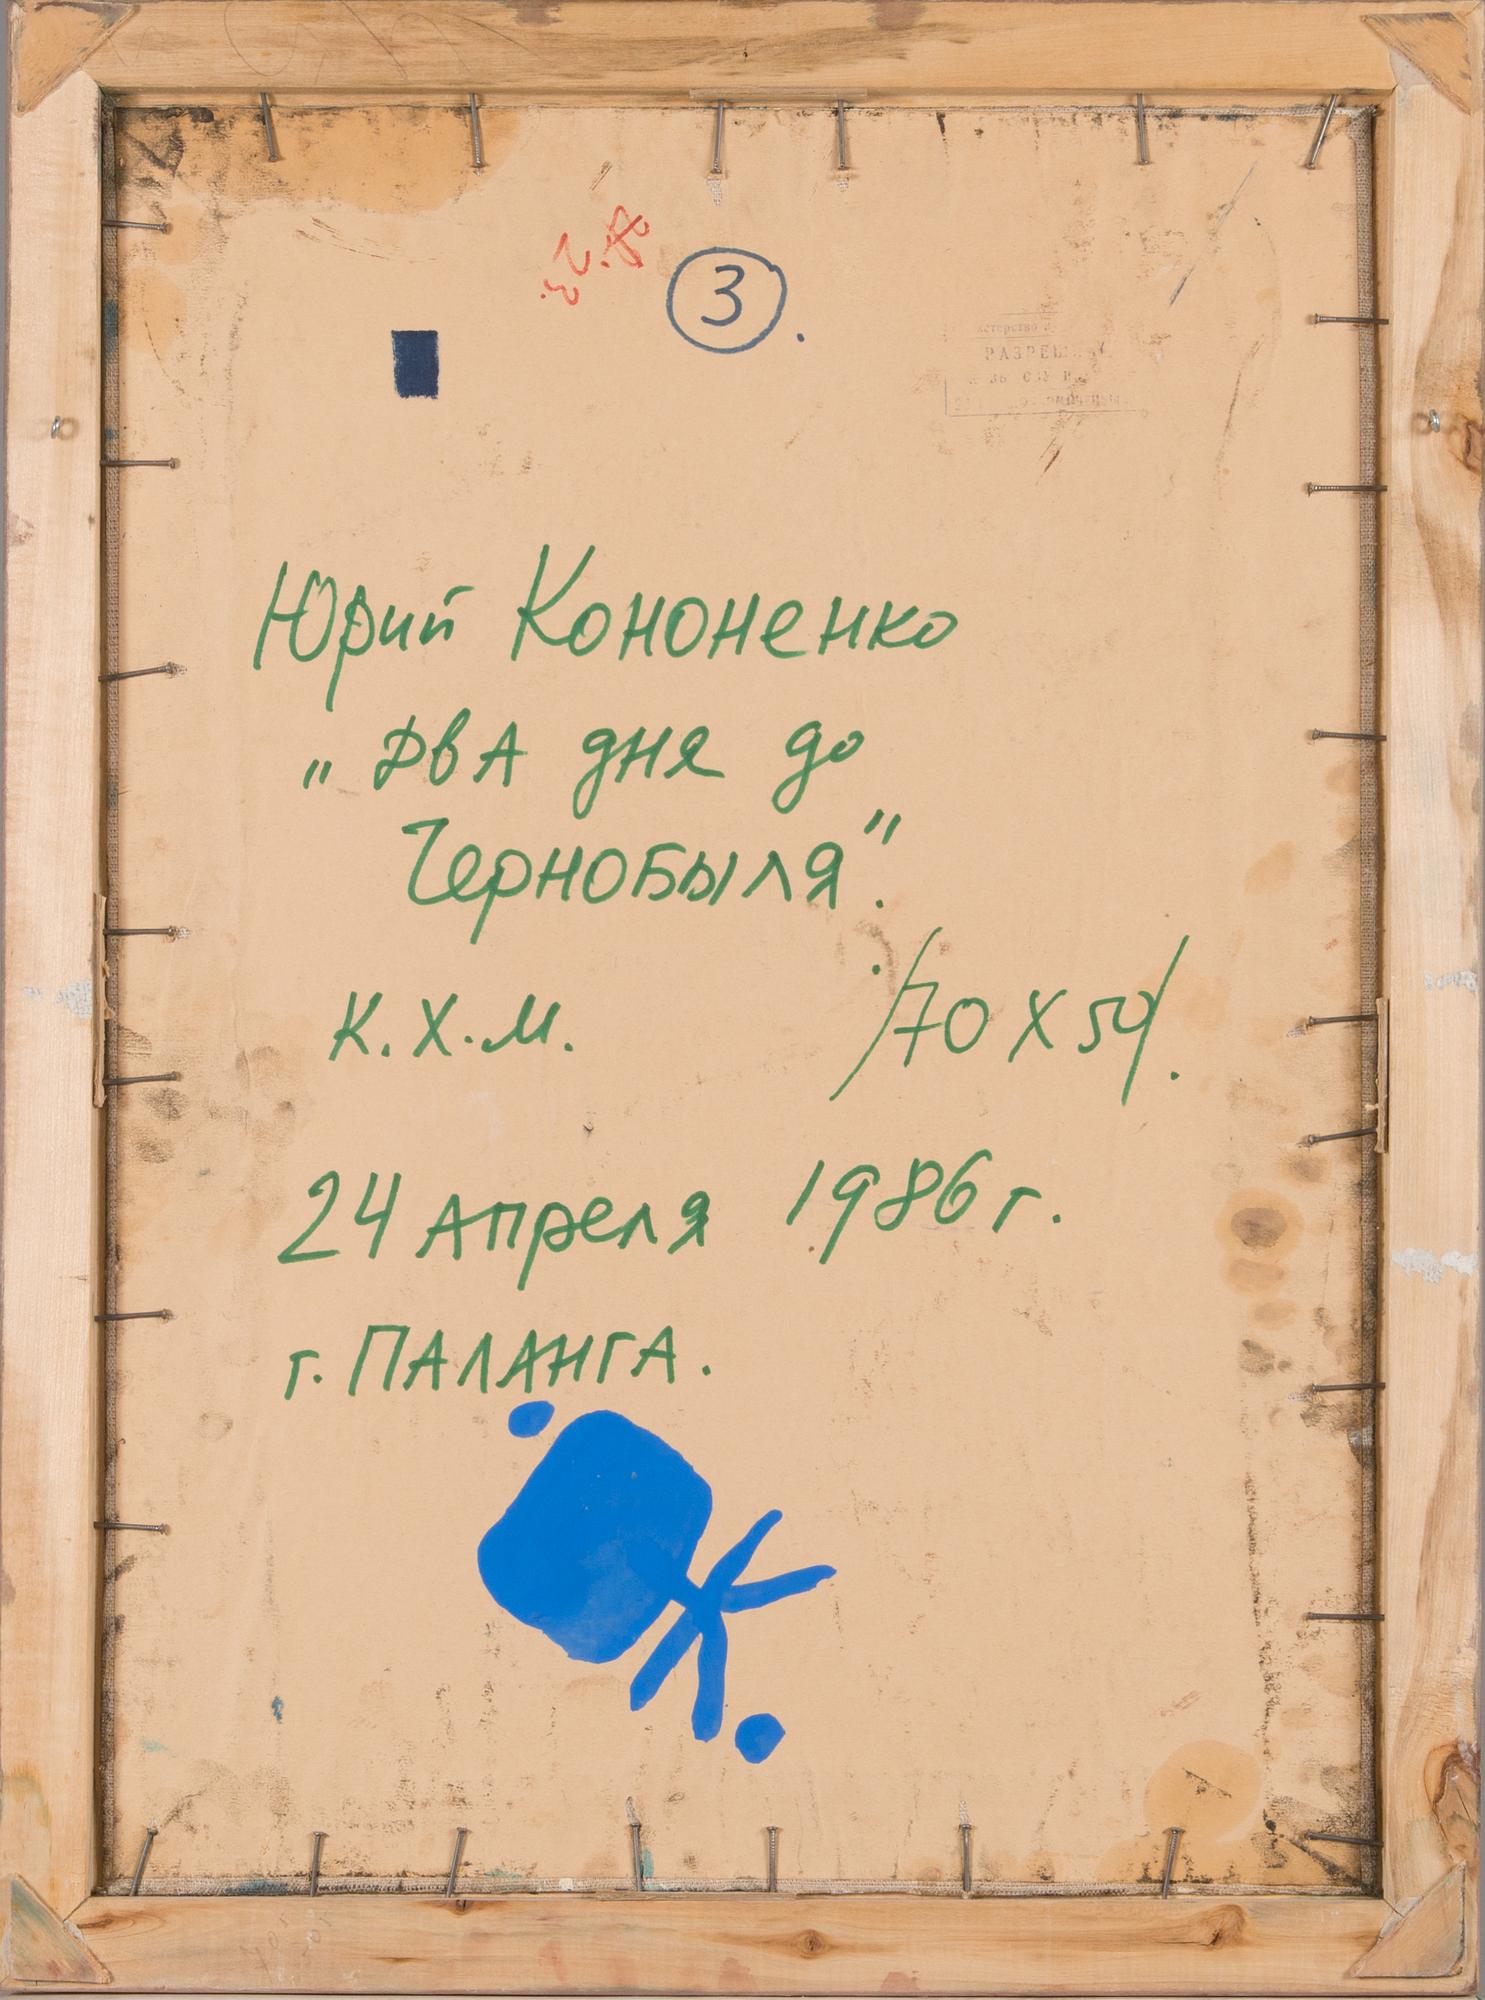 3.
РАЗРЕШ
Юрий Кононенко
„Два дня до
Чернобыля".
К.Х.М. /70 Х 50/.
24 Апреля 1986 г.
г. ПАЛАНГА.